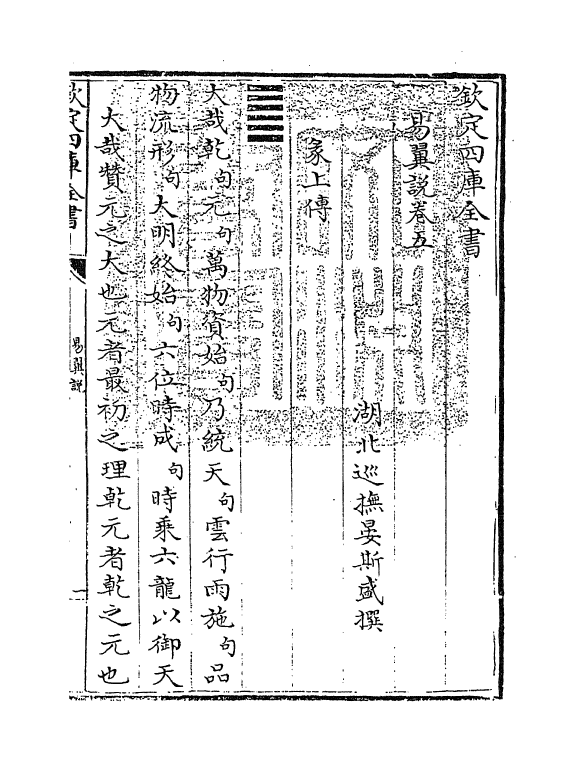 欽定四庫全書
易翼說卷五
湖北巡撫晏斯盛撰
彖上傳
䷀
大哉乾句元句萬物資始句乃統天句雲行雨施句品
物流形句大明終始句六位時成句時乘六龍以御天
大哉贊元之大也元者最初之理乾元者乾之元也
欽定四庫全書
易翼說
一